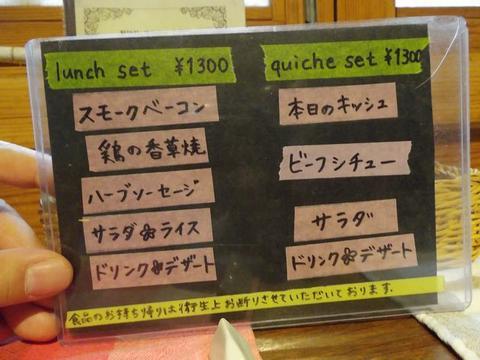 lunch set ¥1300
スモークベーコン
鶏の香草焼
ハーブソーセージ
サラダ&ライス
ドリンク&デザート
quiche set ¥1300
本日のキッシュ
ビーフシチュー
サラダ
ドリンク&デザート
食品のお持ち帰りは衛生上お断りさせていただいております.